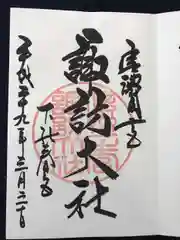 信濃國一之宮
諏訪大社
下社宮
平成二十九年三月二十日